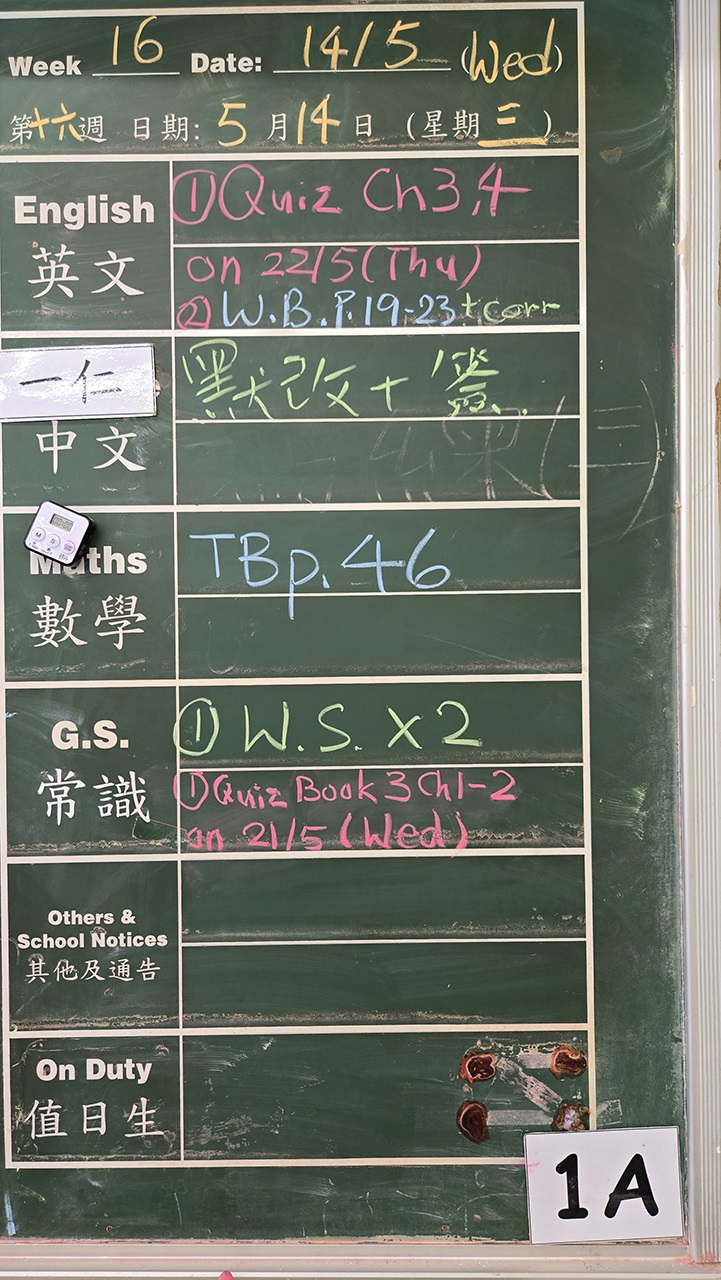 Week 16 Date: 14/5 (Wed)
第十六週 日期: 5月14日 (星期三)
English
英文
①Quiz Ch3,4
on 22/5(Thu)
② W.B.P.19-23+corr
一仁
中文
默改+簽
Maths
數學
TBp.46
G.S.
常識
① W.S. x2
①Quiz Book 3 Ch1-2
on 21/5 (Wed)
Others &
School Notices
其他及通告
On Duty
值日生
1A